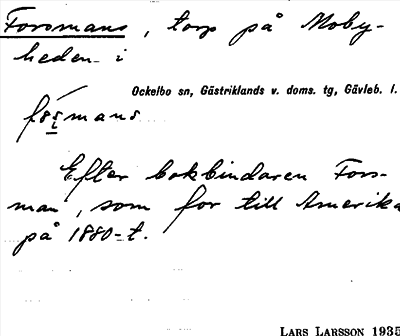 Forsmans, torp på Moby-
heden i
Ockelbo sn, Gästriklands v. doms. tg, Gävleb. l.
Efter bokbindaren Fors-
man, som for till Amerika
på 1880-t.
LARS LARSSON 1935